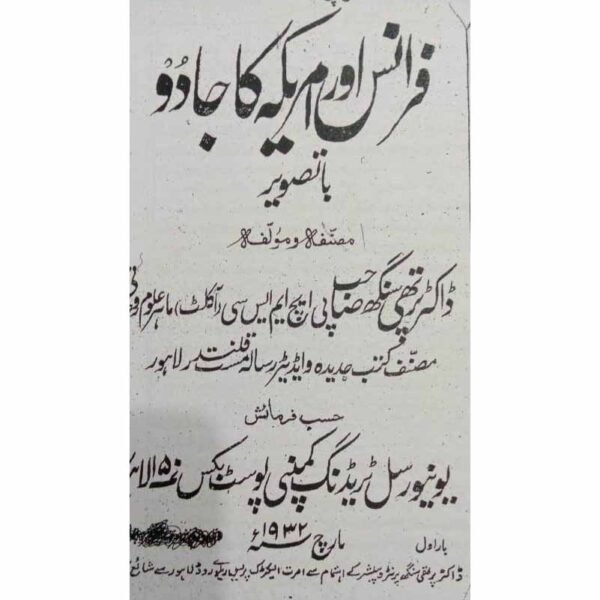 فرانس اور امریکہ کا جادو
باتصویر
مصنفہ و مولفہ
ڈاکٹر پرتھی سنگھ صاحب پی ایچ ایم ایس سی (آکلٹ) ماہر علوم
مصنف کتب جدیدہ و ایڈیٹر رسالہ مست قلندر لاہور
حسب فرمائش
یونیورسل ٹریڈنگ کمپنی پوسٹ بکس نمبر ۵۱
بار اول مارچ ۱۹۳۲ء
ڈاکٹر پرتھی سنگھ پرنٹر و پبلشر کے اہتمام سے امرت الیکٹرک پریس ریلوے روڈ لاہور سے شائع